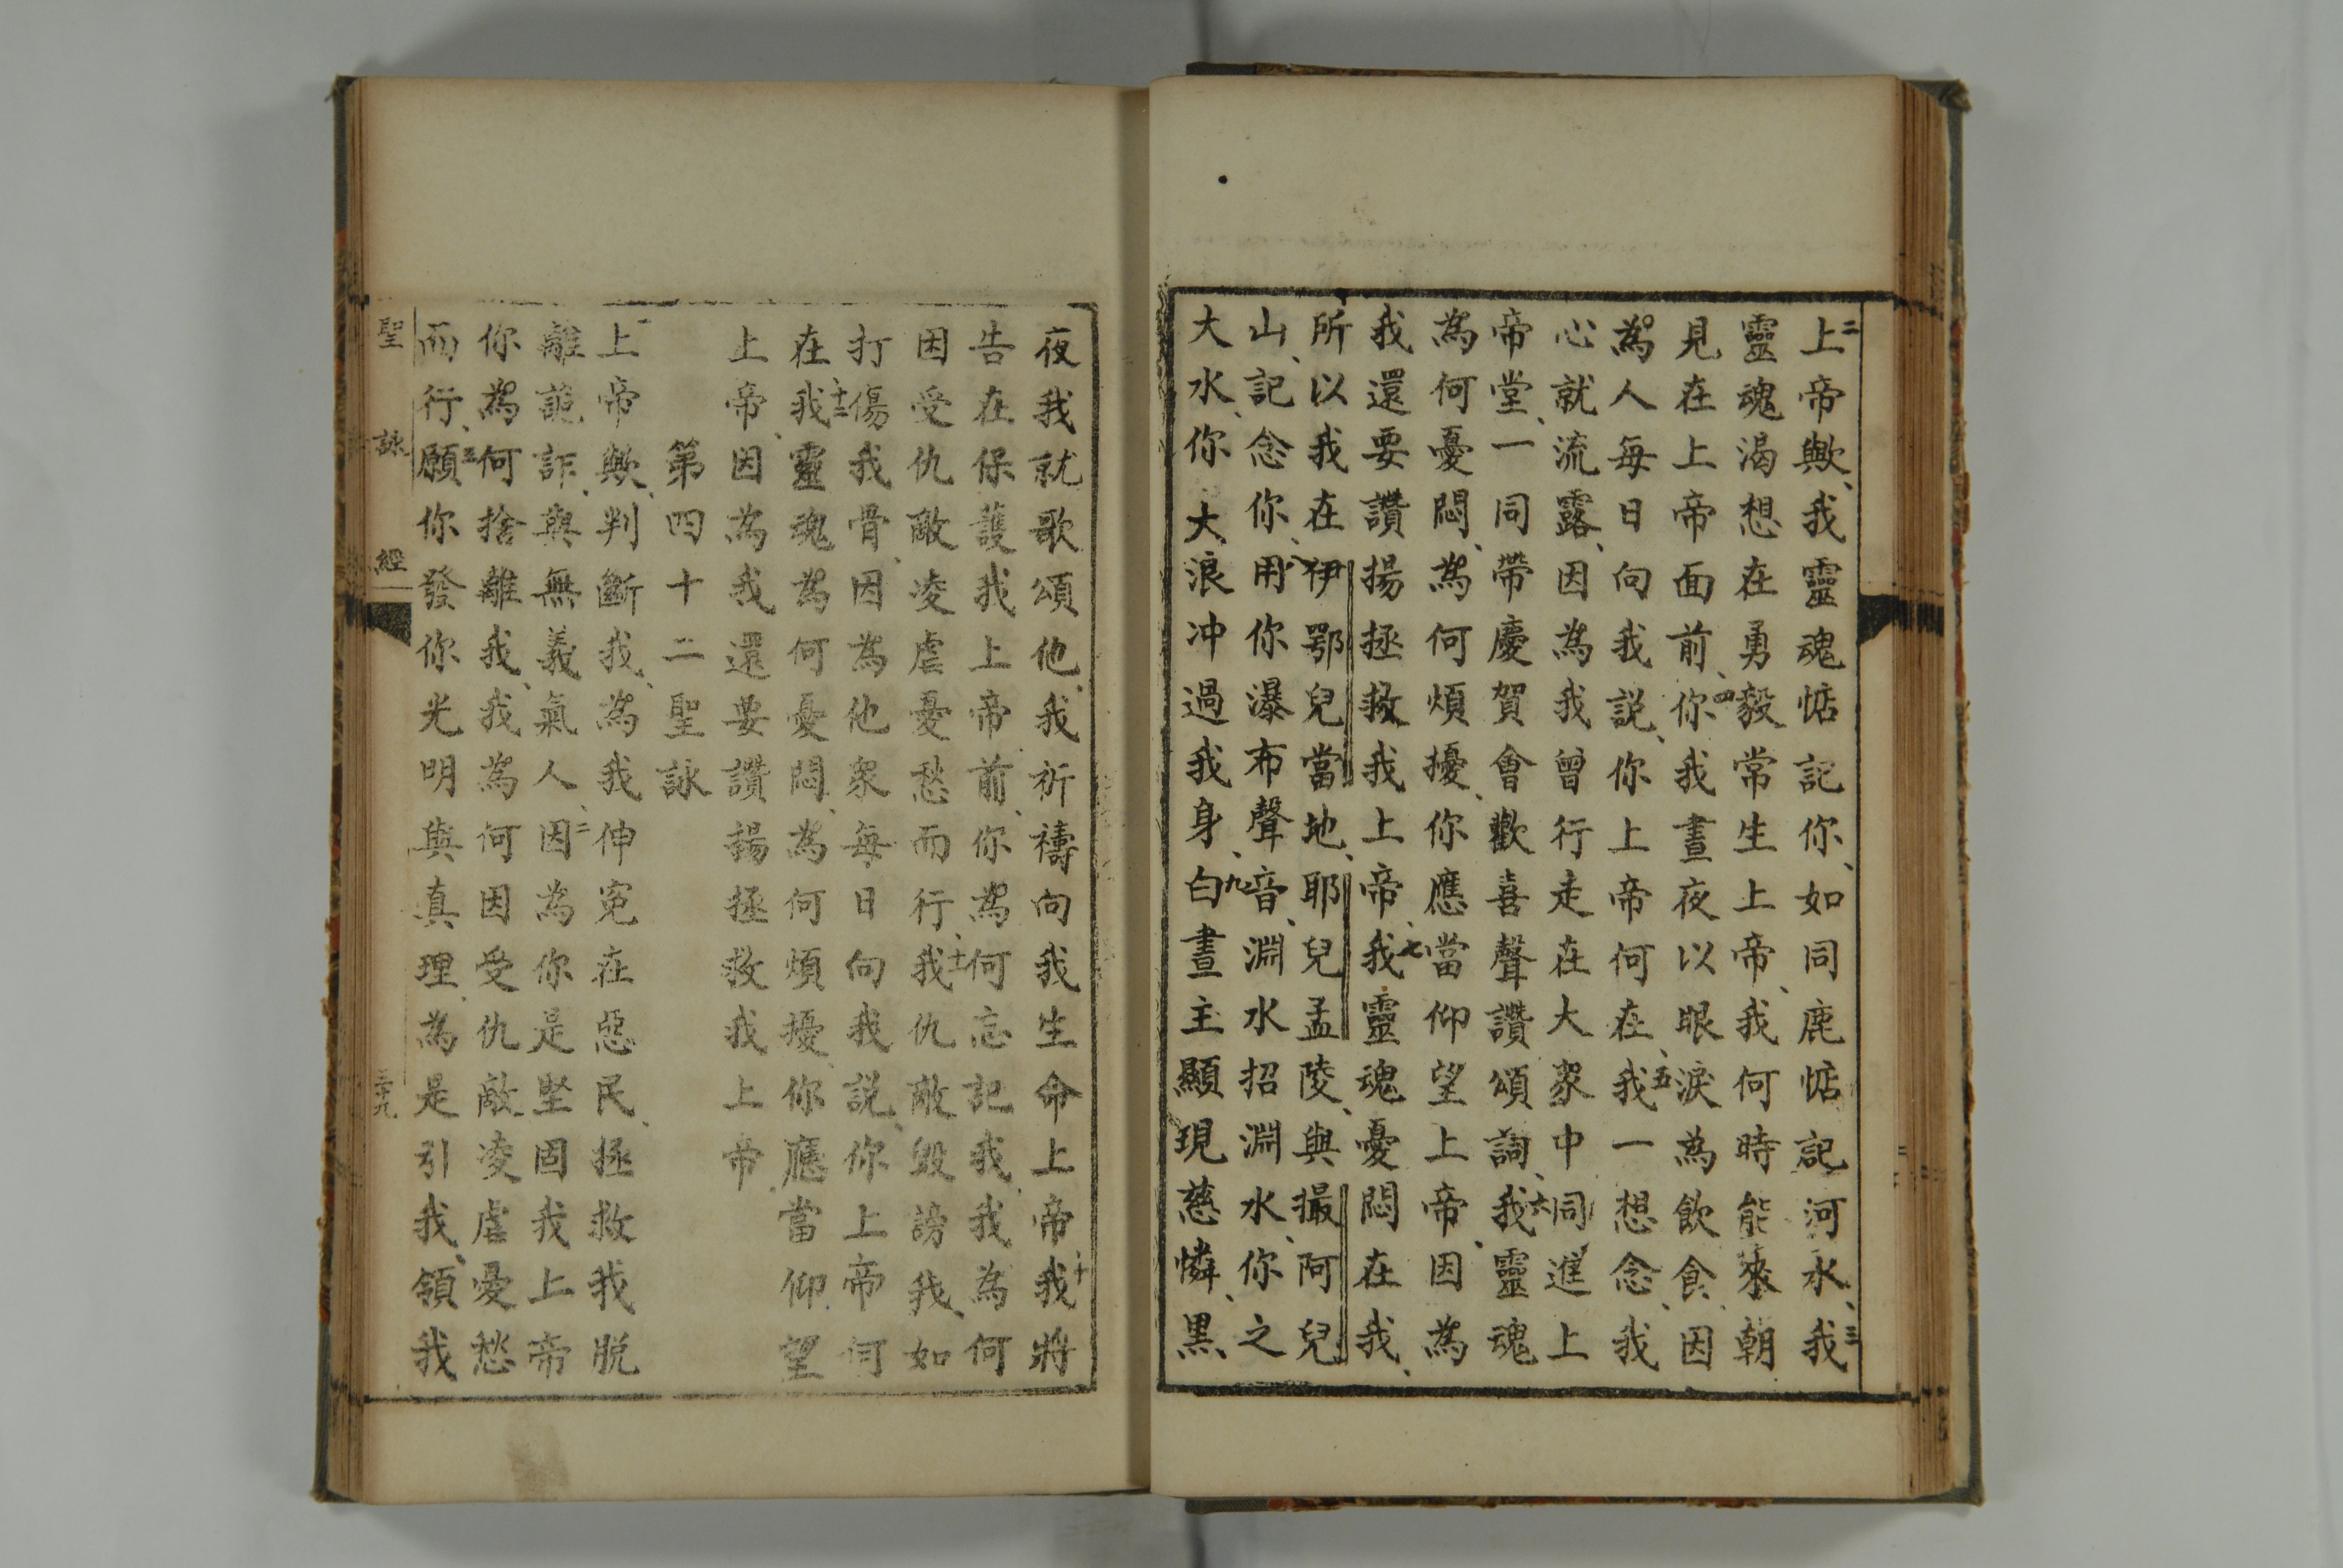 二上帝歟、我靈魂惦記你、如同鹿惦記河水、三我
靈魂渴想在勇毅常生上帝、我何時能來朝
見在上帝面前、四你我晝夜以眼淚為飲食、因
為人每日向我説、你上帝何在、五我一想念、我
心就流露、因為我曾行走在大衆中同進上
帝堂、一同帶慶賀會歡喜聲讚頌詞、六我靈魂
為何憂悶、為何煩擾、你應當仰望上帝、因為
我還要讚揚拯救我上帝、七我靈魂憂悶在我、
所以我在伊鄂兒當地、耶兒孟陵、與撮阿兒
山、記念你、用你瀑布聲音、淵水招淵水、你之
大水、你大浪冲過我身、九白晝主顯現慈憐、黑
夜我就歌頌他、我祈禱向我生命上帝、十我將
告在保護我上帝前、你為何忘記我、我為何
因受仇敵凌虐憂愁而行、十一我仇敵毀謗我、如
打傷我骨、因為他衆每日向我説、你上帝何
在、十二我靈魂為何憂悶、為何煩擾、你應當仰望
上帝、因為我還要讚揚拯救我上帝、
第四十二聖詠
一上帝歟、判斷我、為我伸寃在惡民、拯救我脱
離詭詐、與無義氣人、二因為你是堅固我上帝
你為何捨離我、我為何因受仇敵凌虐憂愁
而行、三願你發你光明與真理、為是引我、領我
聖詠經 三十九